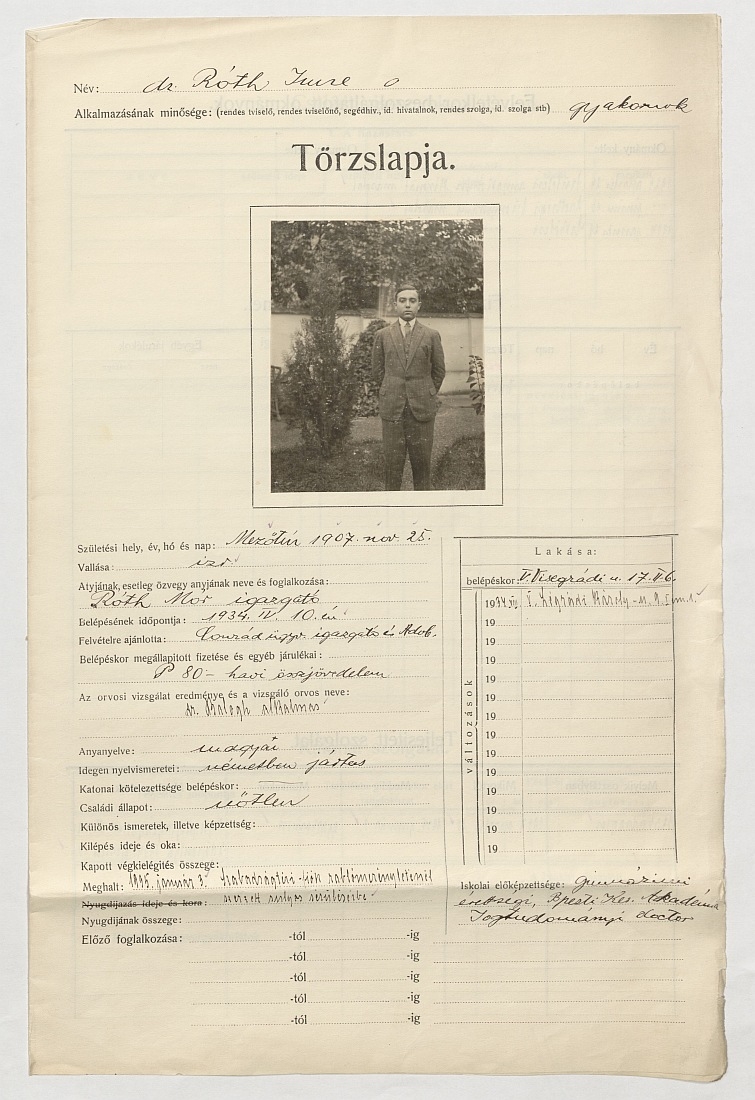 Név: dr. Róth Imre
Alkalmazásának minősége: (rendes tviselő, rendes tviselőnő, segédhiv., id. hivatalnok, rendes szolga, id. szolga stb) gyakornok
Törzslapja.
Születési hely, év, hó és nap: Mezőtúr 1907. nov. 25.
Vallása: izr.
Atyjának, esetleg özvegy anyjának neve és foglalkozása:
Róth Mór igazgató
Belépésének időpontja: 1934. IV. 10.én
Felvételre ajánlotta: Conrad ügyv. igazgató és
Belépéskor megállapitott fizetése és egyéb járulékai:
P 80- havi összjövedelem
Az orvosi vizsgálat eredménye és a vizsgáló orvos neve:
dr. Balogh alkalmas
Anyanyelve: magyar
Idegen nyelvismeretei: németben jártas
Katonai kötelezettsége belépéskor:
Családi állapot: nőtlen
Különös ismeretek, illetve képzettség:
Kilépés ideje és oka:
Kapott végkielégités összege:
Meghalt: 1945. január 3. Szabadságtéri
Nyugdijazás ideje és kora: súlyos
Nyugdijának összege:
Előző foglalkozása: -tól -ig
-tól -ig
-tól -ig
-tól -ig
-tól -ig
Lakása:
belépéskor: V. Visegrádi u. 17. II. 6.
változások
1934 V. Légrády Károly-u.
19
19
19
19
19
19
19
19
19
19
19
19
19
Iskolai előképzettsége: Gimnáziumi
érettségi, Bpesti Ker. Akadémia
Jogtudományi doctor